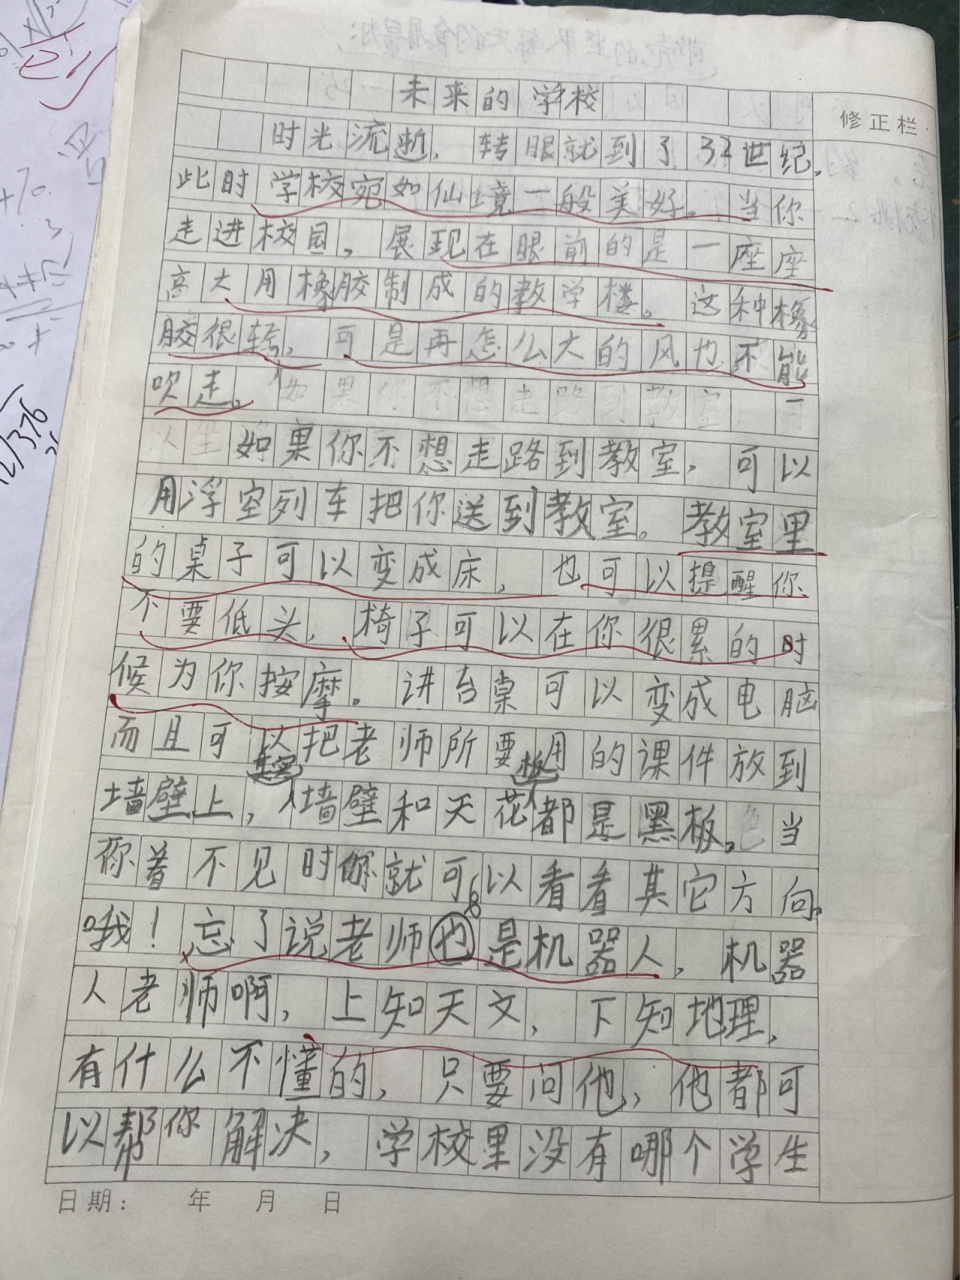 未来的学校
修正栏
时光流逝，转眼就到了32世纪。
此时学校宛如仙境一般美好。当你
走进校园，展现在眼前的是一座座
高大用橡胶制成的教学楼。这种橡
胶很轻，可是再怎么大的风也不能
吹走。
如果你不想走路到教室，可以
用浮空列车把你送到教室。教室里
的桌子可以变成床，也可以提醒你
不要低头，椅子可以在你很累的时
候为你按摩。讲台桌可以变成电脑
而且可以把老师所要用的课件放到
墙壁上，墙壁和天花板都是黑板。当
你着不见时你就可以看看其它方向。
哦！忘了说老师也是机器人，机器
人老师啊，上知天文，下知地理，
有什么不懂的，只要问他，他都可
以帮你解决，学校里没有哪个学生
日期： 年 月 日
12/376